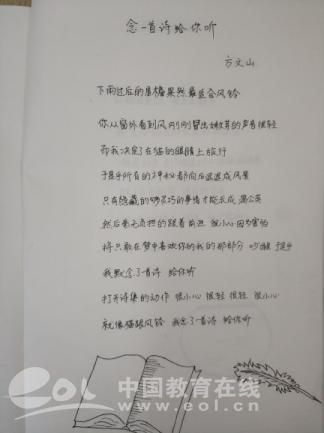 念一首诗给你听
方文山
下雨过后的屋檐果然最适合风铃
你从窗外看到风刚刚冒出嫩芽的声音很轻
而我决定了在猫的眼睛上旅行
于是乎所有的神秘都向后退成风景
只有隐藏的够灵巧的事情才能长成 蒲公英
然后毫无负担的跟着前进 很小心因为害怕
将只敢在梦中喜欢你的我的那部分 吵醒 于是乎
我默念了一首诗 给你听
打开诗集的动作 很小心 很轻 很轻 很小心
就像猫跟风铃 我念了一首诗 给你听
eol 中国教育在线
www.eol.cn